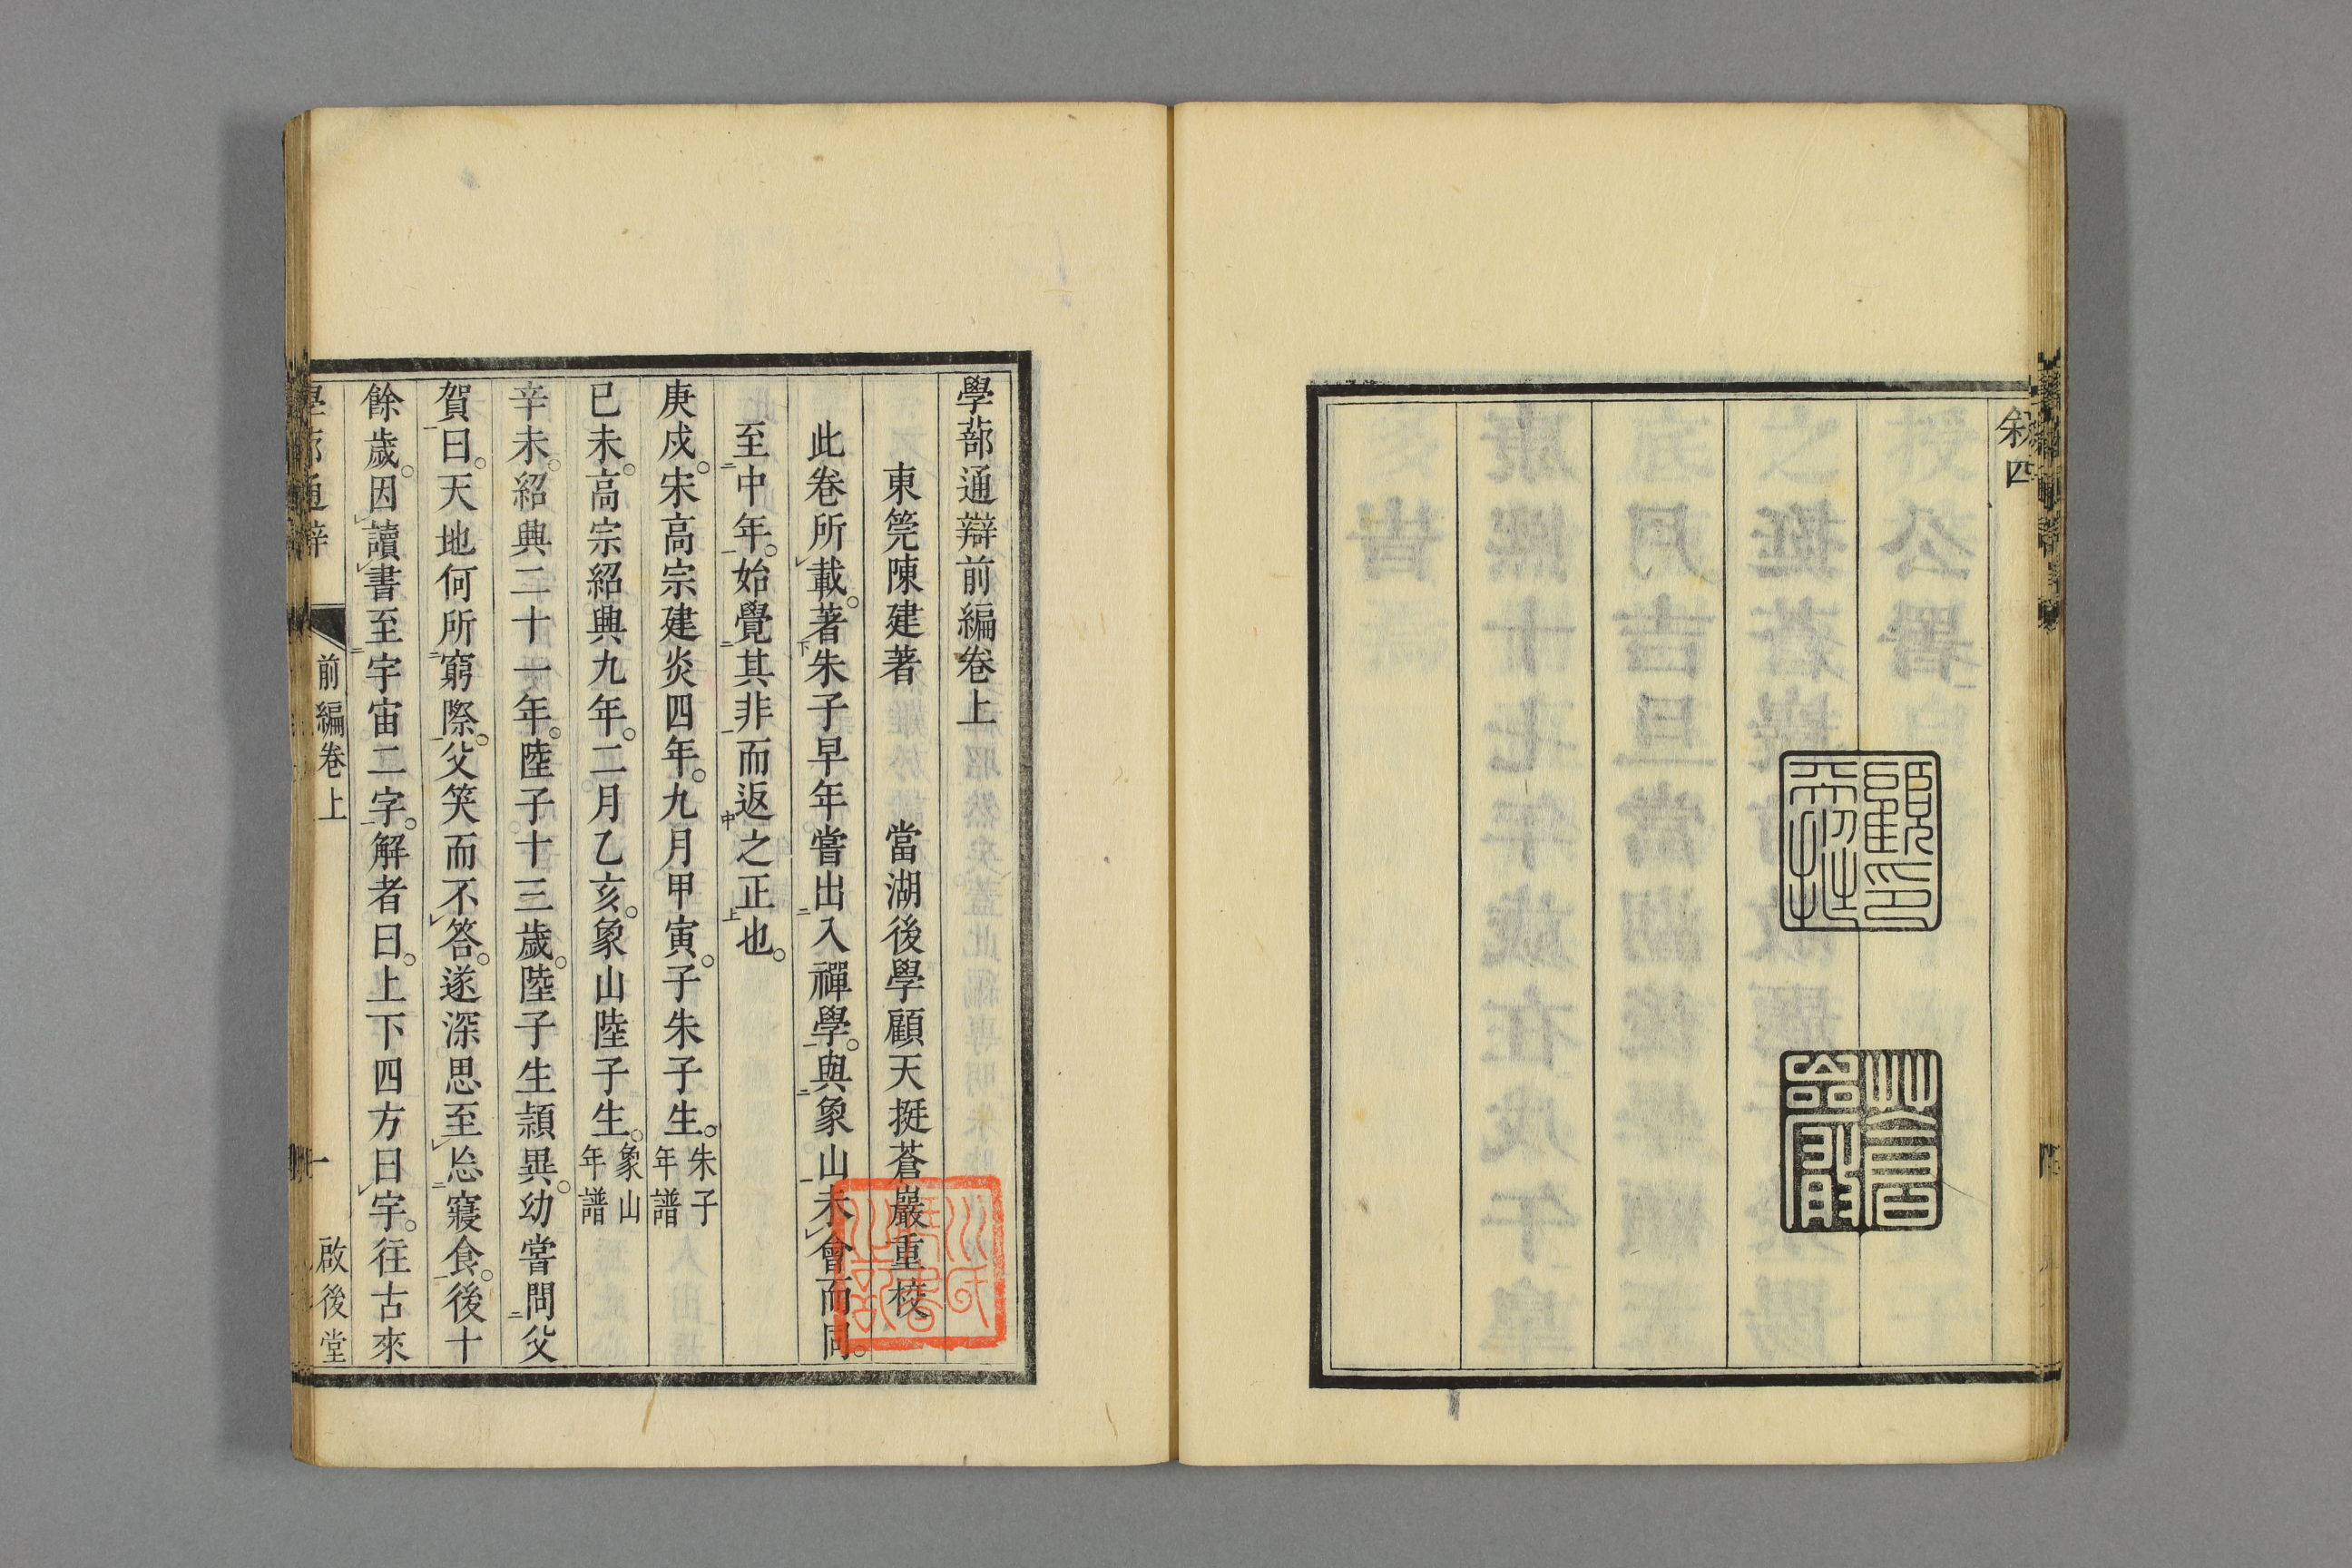 叙四
顧印
天挺
蒼巖
學蔀通辯前編卷上
東莞陳建著　當湖後學顧天挺蒼巖重校
此卷所載。著朱子早年嘗出入禪學。與象山未會而同。
至中年。始覺其非而返之正也。
庚戌。宋高宗建炎四年。九月甲寅。子朱子生。朱子年譜
已未。高宗紹興九年。二月乙亥。象山陸子生。象山年譜
辛未。紹興二十一年。陸子十三歲。陸子生頴異。幼嘗問父
賀曰。天地何所窮際。父笑而不答。遂深思至忘寢食。後十
餘歲。因讀書至宇宙二字。解者曰。上下四方曰宇。往古來
學蔀通辯　前編卷上　一　啟後堂